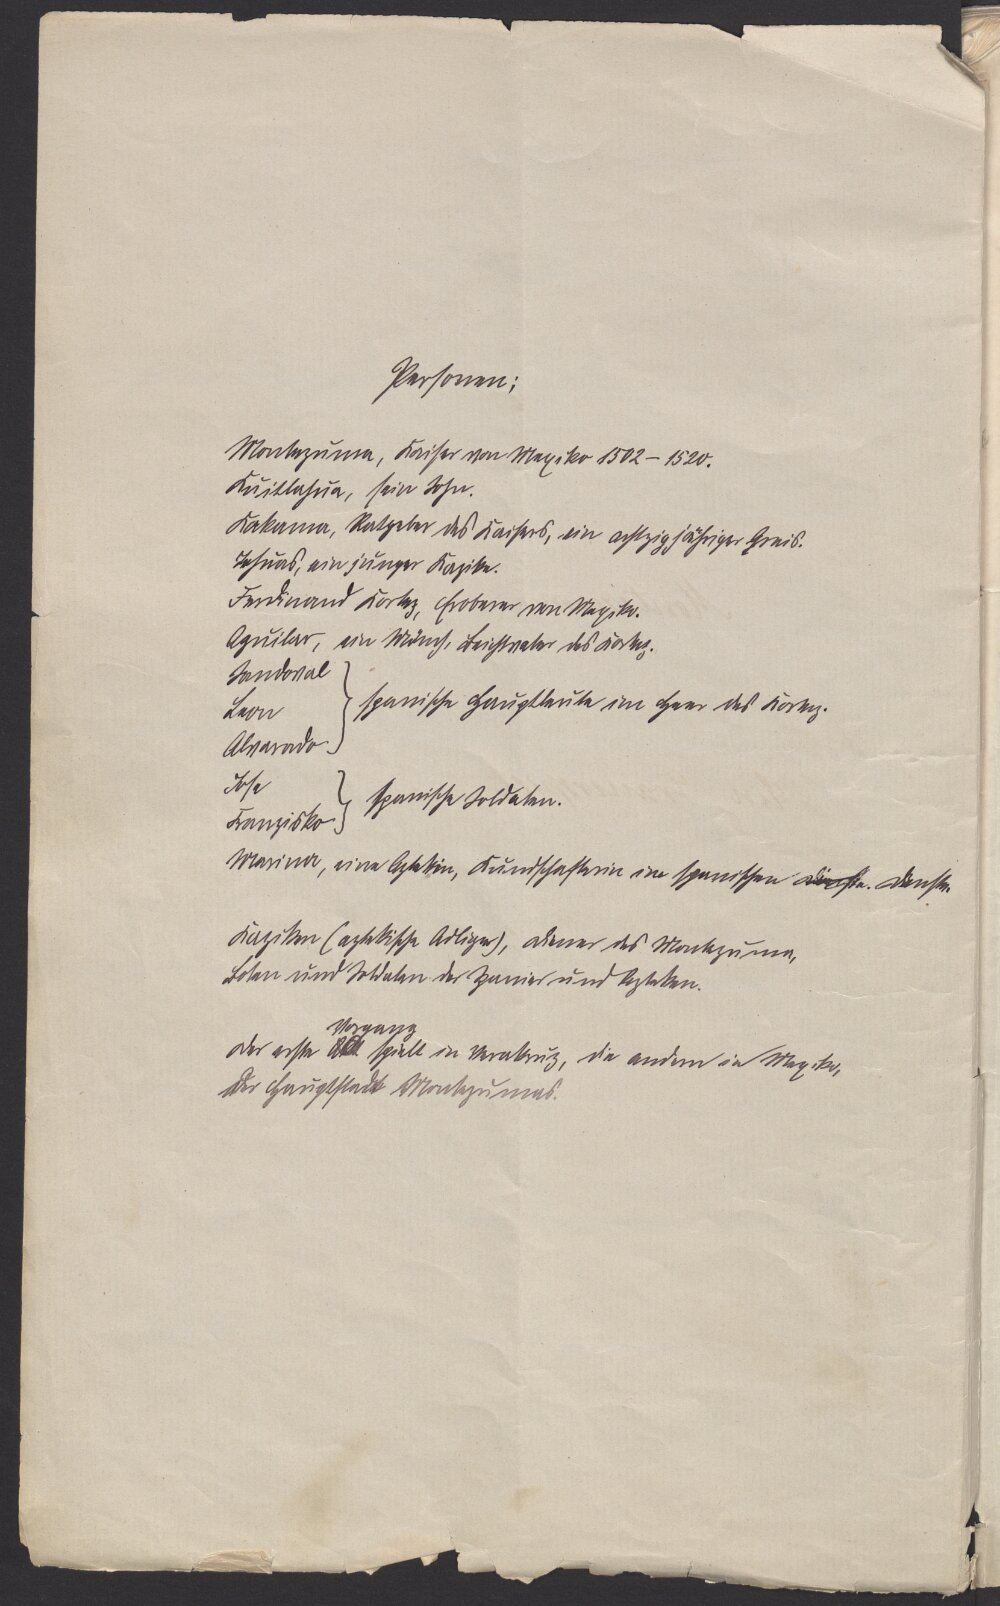 Personen:
Montezuma, Kaiser von Mexiko 1502 – 1520.
Kuitlahua, sein Sohn.
Kakama, Ratgeber des Kaisers, ein achtzigjähriger Greis.
Tehuas, ein junger Kazike.
Ferdinand Kortez, Eroberer von Mexiko.
Aguilar, ein Mönch, Beichtvater des Kortez.
Sandoval
Leon
Alvarado
spanische Hauptleute im Heer des Kortez.
Jose
Franzisko
spanische Soldaten.
Marina, eine Aztekin, Kundschafterin im spanischen Dienste. Dienste.
Kaziken (aztekische Adlige), Diener des Montezuma,
Boten und Soldaten der Spanier und Azteken.
Vorgang
Der erste Akt spielt in Verakruz, die andern in Mexiko,
der Hauptstadt Montezumas.